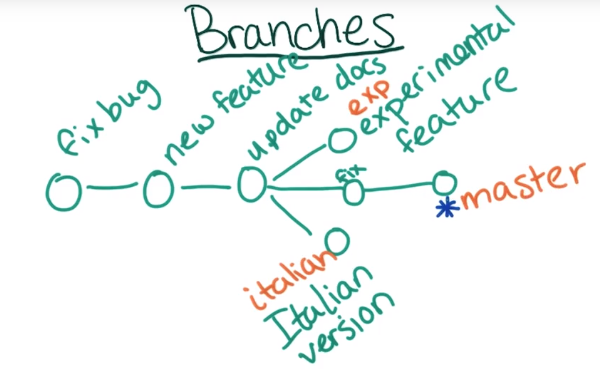 Branches
fix bug
new feature
update docs
exp
experimental
feature
fix
*master
italian
Italian
version